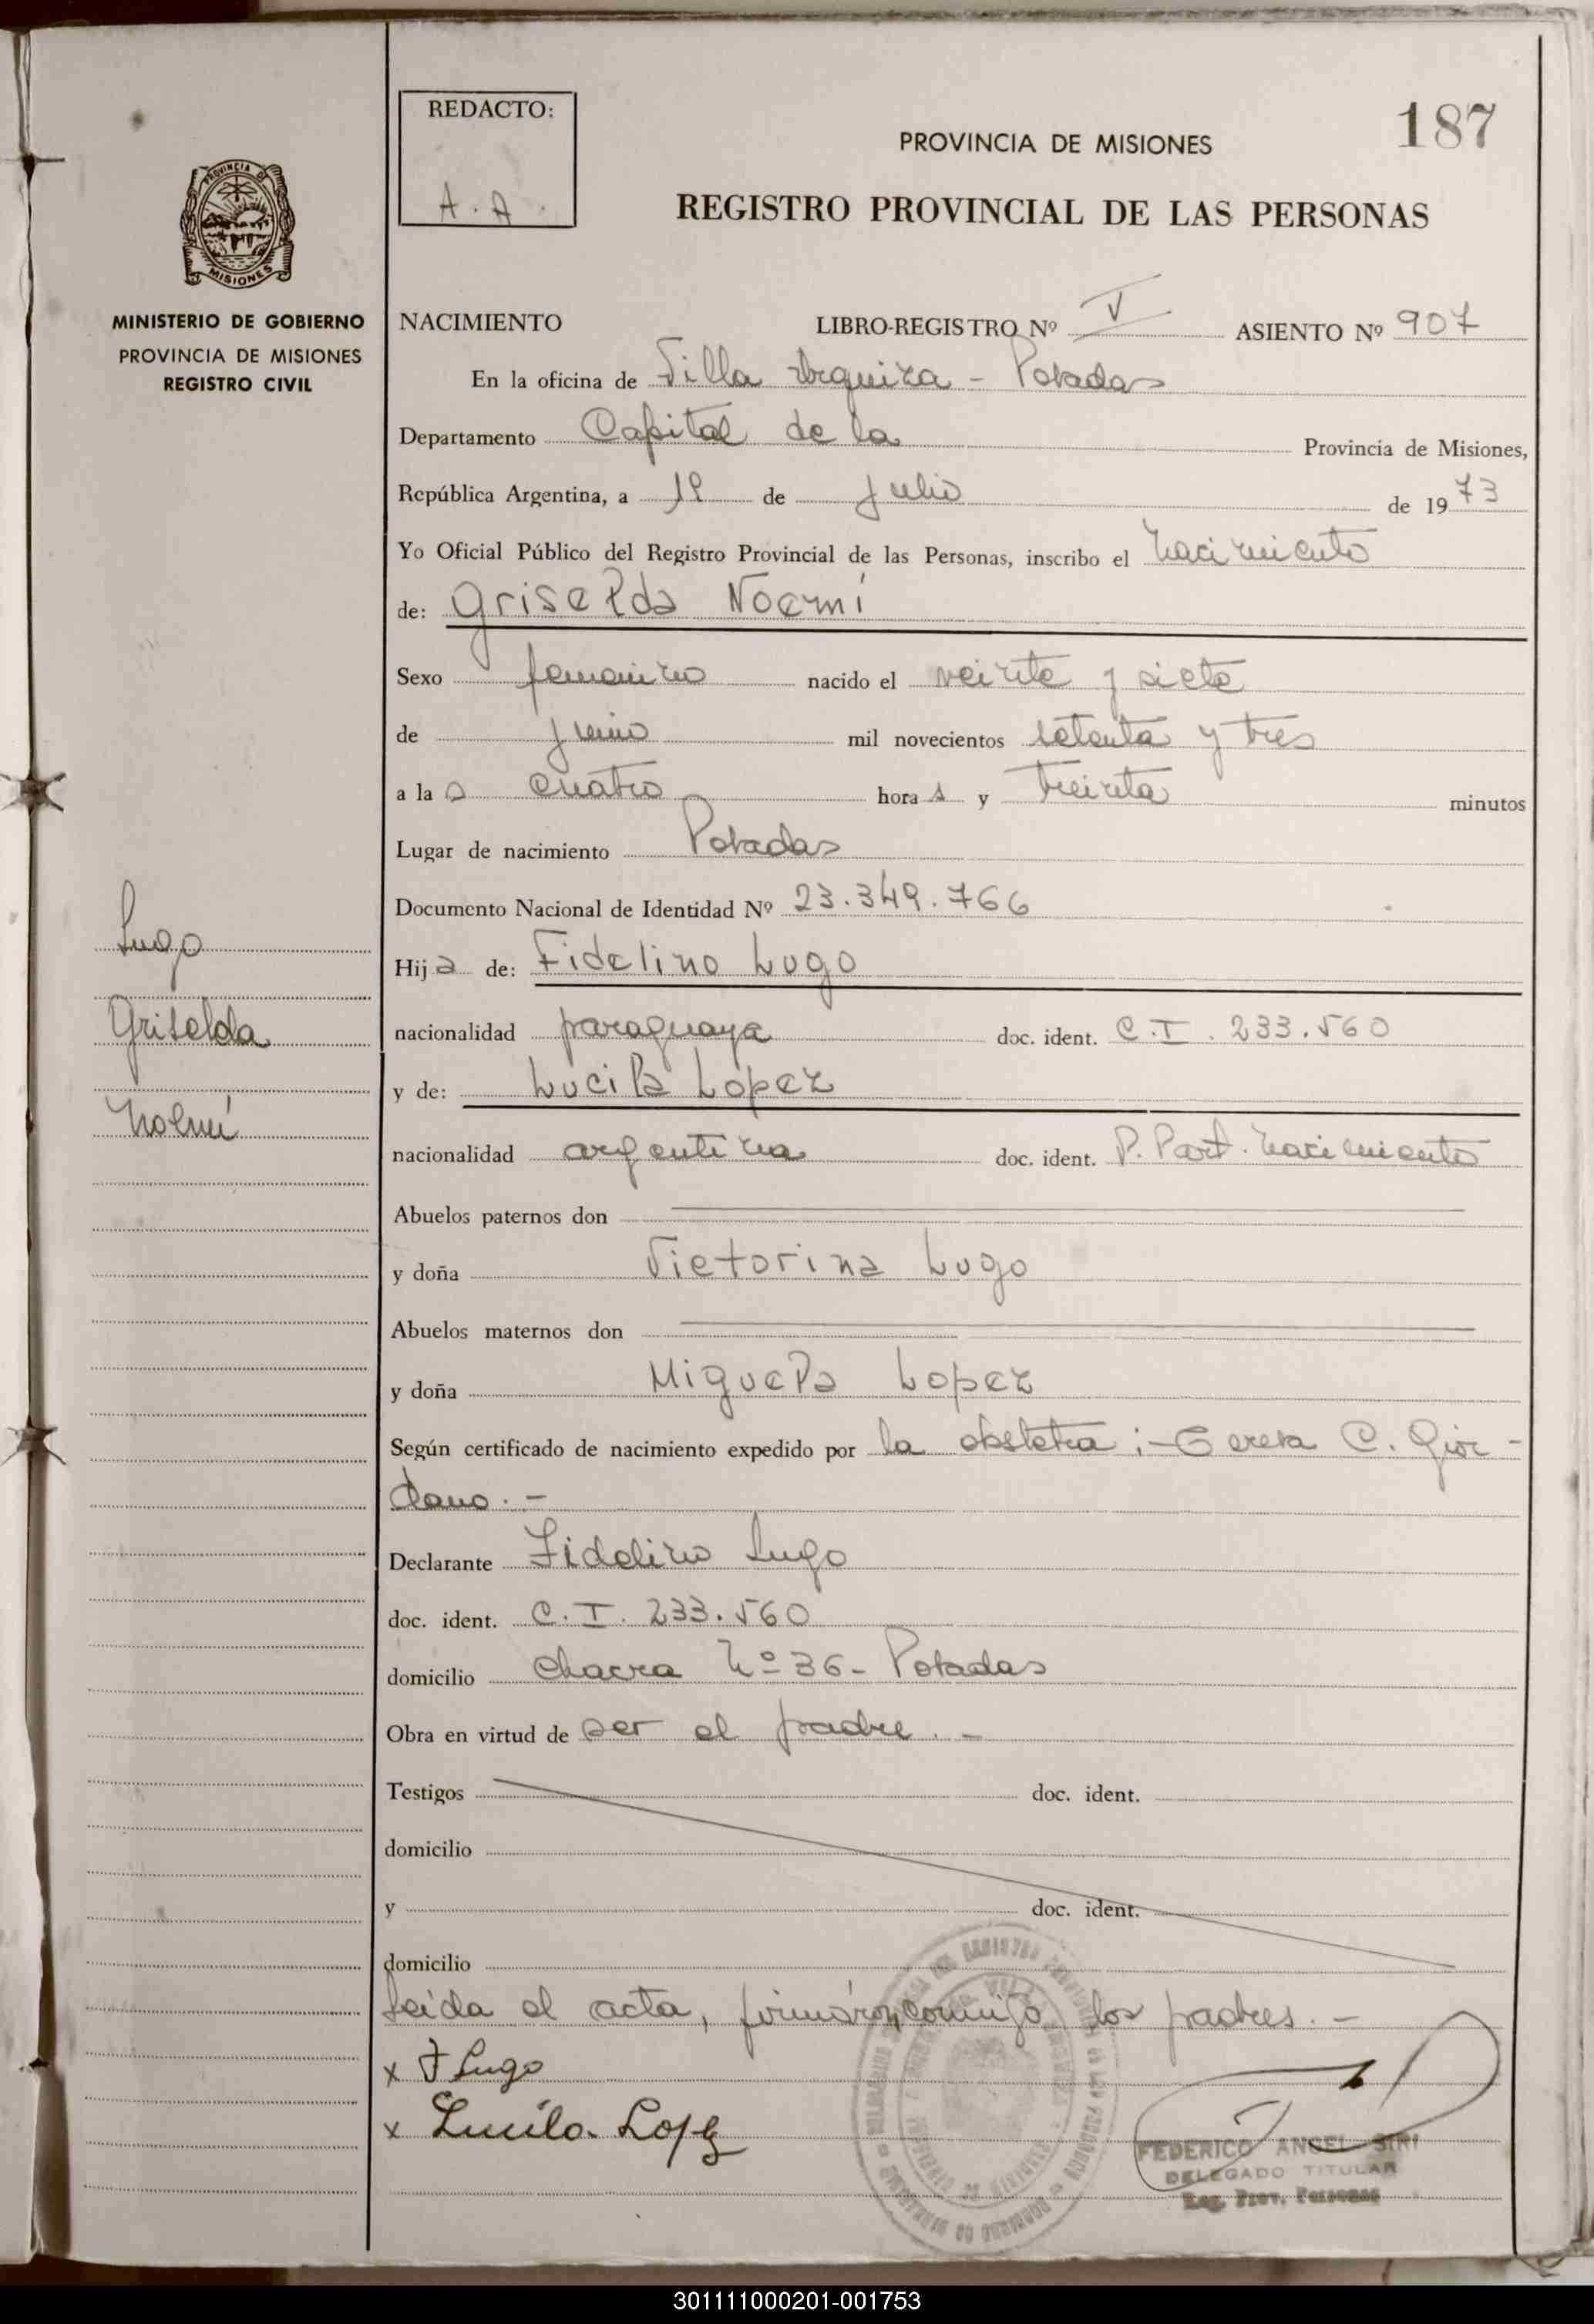 187
REDACTO:
A. A.
PROVINCIA DE MISIONES
REGISTRO PROVINCIAL DE LAS PERSONAS
PROVINCIA DE
MISIONES
MINISTERIO DE GOBIERNO
PROVINCIA DE MISIONES
REGISTRO CIVIL
NACIMIENTO LIBRO-REGISTRO Nº V ASIENTO Nº 907
En la oficina de Villa Urquiza - Posadas
Departamento Capital de la Provincia de Misiones,
República Argentina, a 1º de Julio de 1973
Yo Oficial Público del Registro Provincial de las Personas, inscribo el nacimiento
de: Griselda Noemí
Sexo femenino nacido el veinte y siete
de junio mil novecientos setenta y tres
a las cuatro horas y treinta minutos
Lugar de nacimiento Posadas
Documento Nacional de Identidad Nº 23.349.766
Hija de: Fidelino Lugo
nacionalidad paraguaya doc. ident. C.I. 233.560
y de: Lucila López
nacionalidad argentina doc. ident. P. Part. nacimiento
Abuelos paternos don
y doña Victorina Lugo
Abuelos maternos don
y doña Miguela Lopez
Según certificado de nacimiento expedido por la obstetra;- Teresa C. Gior-
dano.-
Declarante Fidelino Lugo
doc. ident. C.I. 233.560
domicilio Chacra Nº 36- Posadas
Obra en virtud de ser el padre.-
Testigos doc. ident.
domicilio
y doc. ident.
domicilio
Leída el acta, firmáron conmigo los padres.-
x F Lugo
x Lucila Lopez
FEDERICO ANGEL SIRI
DELEGADO TITULAR
Reg. Prov. Personas
Lugo
Griselda
Noemí
301111000201-001753